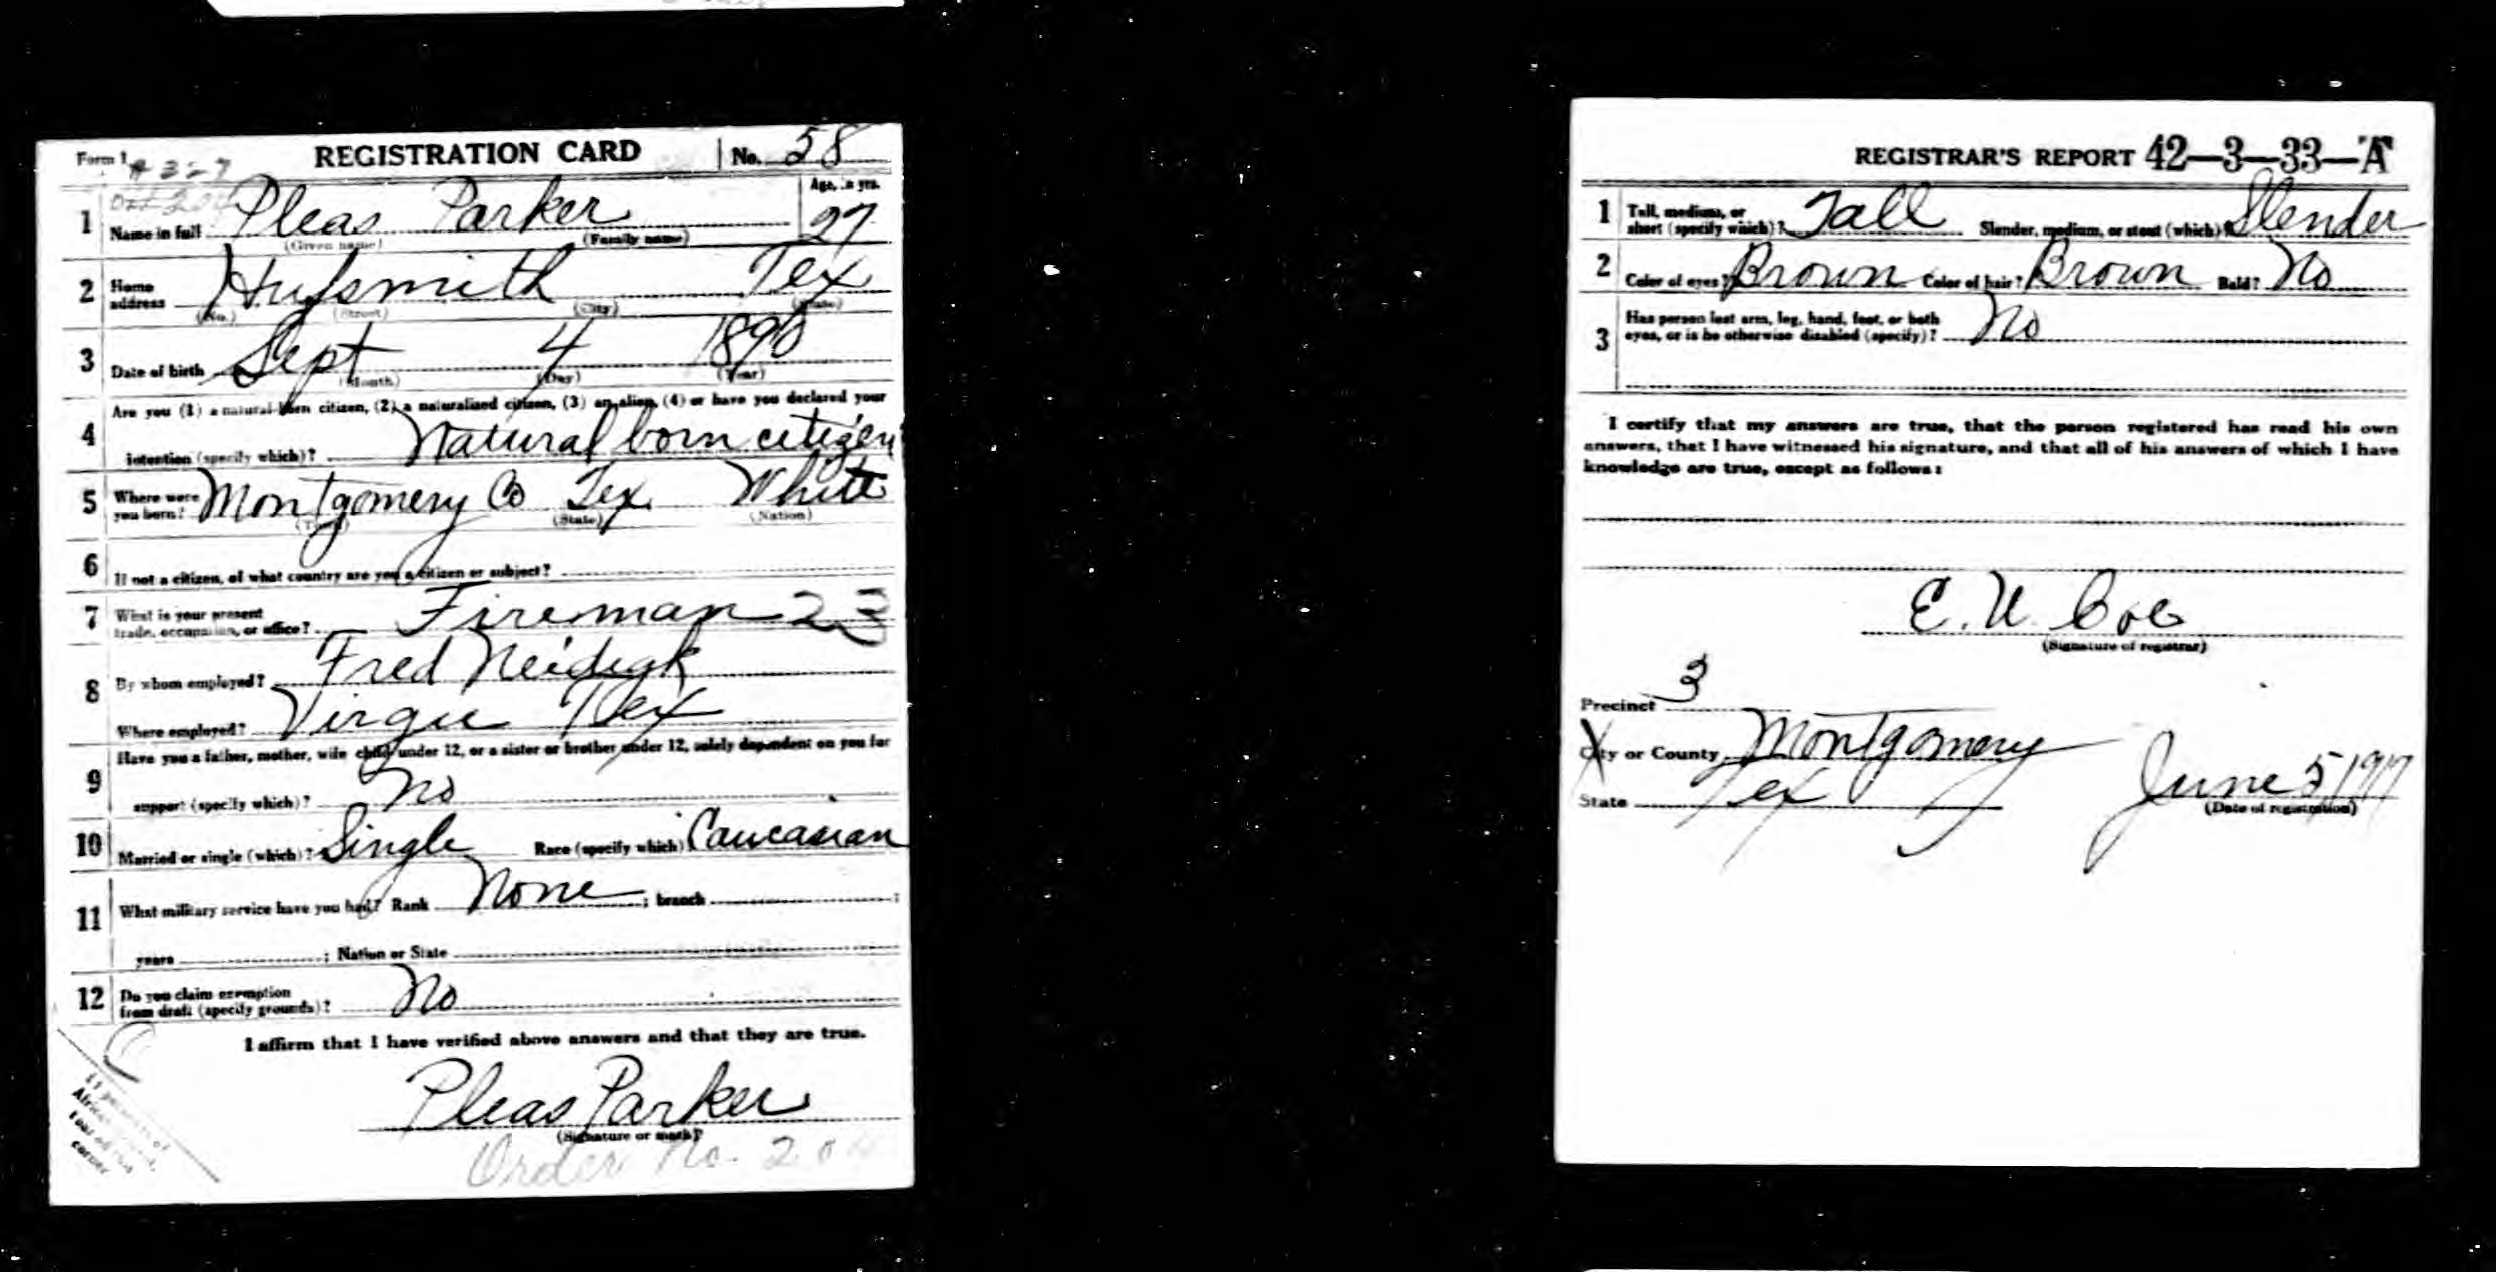 Form 1 # 327 REGISTRATION CARD No. 58
Age, in yrs.
1 Name in full Pleas Parker 27
(Given name) (Family name)
2 Home address Hufsmith Tex
(No.) (Street) (City) (State)
3 Date of birth Sept 4 1890
(Month) (Day) (Year)
Are you (1) a natural-born citizen, (2) a naturalized citizen, (3) an alien, (4) or have you declared your
4 intention (specify which)? Natural born citizen
5 Where were you born? Montgomery Co Tex White
(Town) (State) (Nation)
6 If not a citizen, of what country are you a citizen or subject?
7 What is your present trade, occupation, or office? Fireman 23
8 By whom employed? Fred
Where employed? Virgie Tex
Have you a father, mother, wife, child under 12, or a sister or brother under 12, solely dependent on you for
9 support (specify which)? No
10 Married or single (which)? Single Race (specify which)? Caucasian
11 What military service have you had? Rank None ; branch ;
years ; Nation or State
12 Do you claim exemption from draft (specify grounds)? No
I affirm that I have verified above answers and that they are true.
Pleas Parker
(Signature or mark)
Order No. 20
REGISTRAR'S REPORT 42—3—33—A
1 Tall, medium, or short (specify which)? Tall Slender, medium, or stout (which)? Slender
2 Color of eyes? Brown Color of hair? Brown Bald? No
3 Has person lost arm, leg, hand, foot, or both eyes, or is he otherwise disabled (specify)? No
I certify that my answers are true, that the person registered has read his own
answers, that I have witnessed his signature, and that all of his answers of which I have
knowledge are true, except as follows:
E. U. Coe
(Signature of registrar)
Precinct 3
City or County Montgomery
State Tex June 5 1917
(Date of registration)